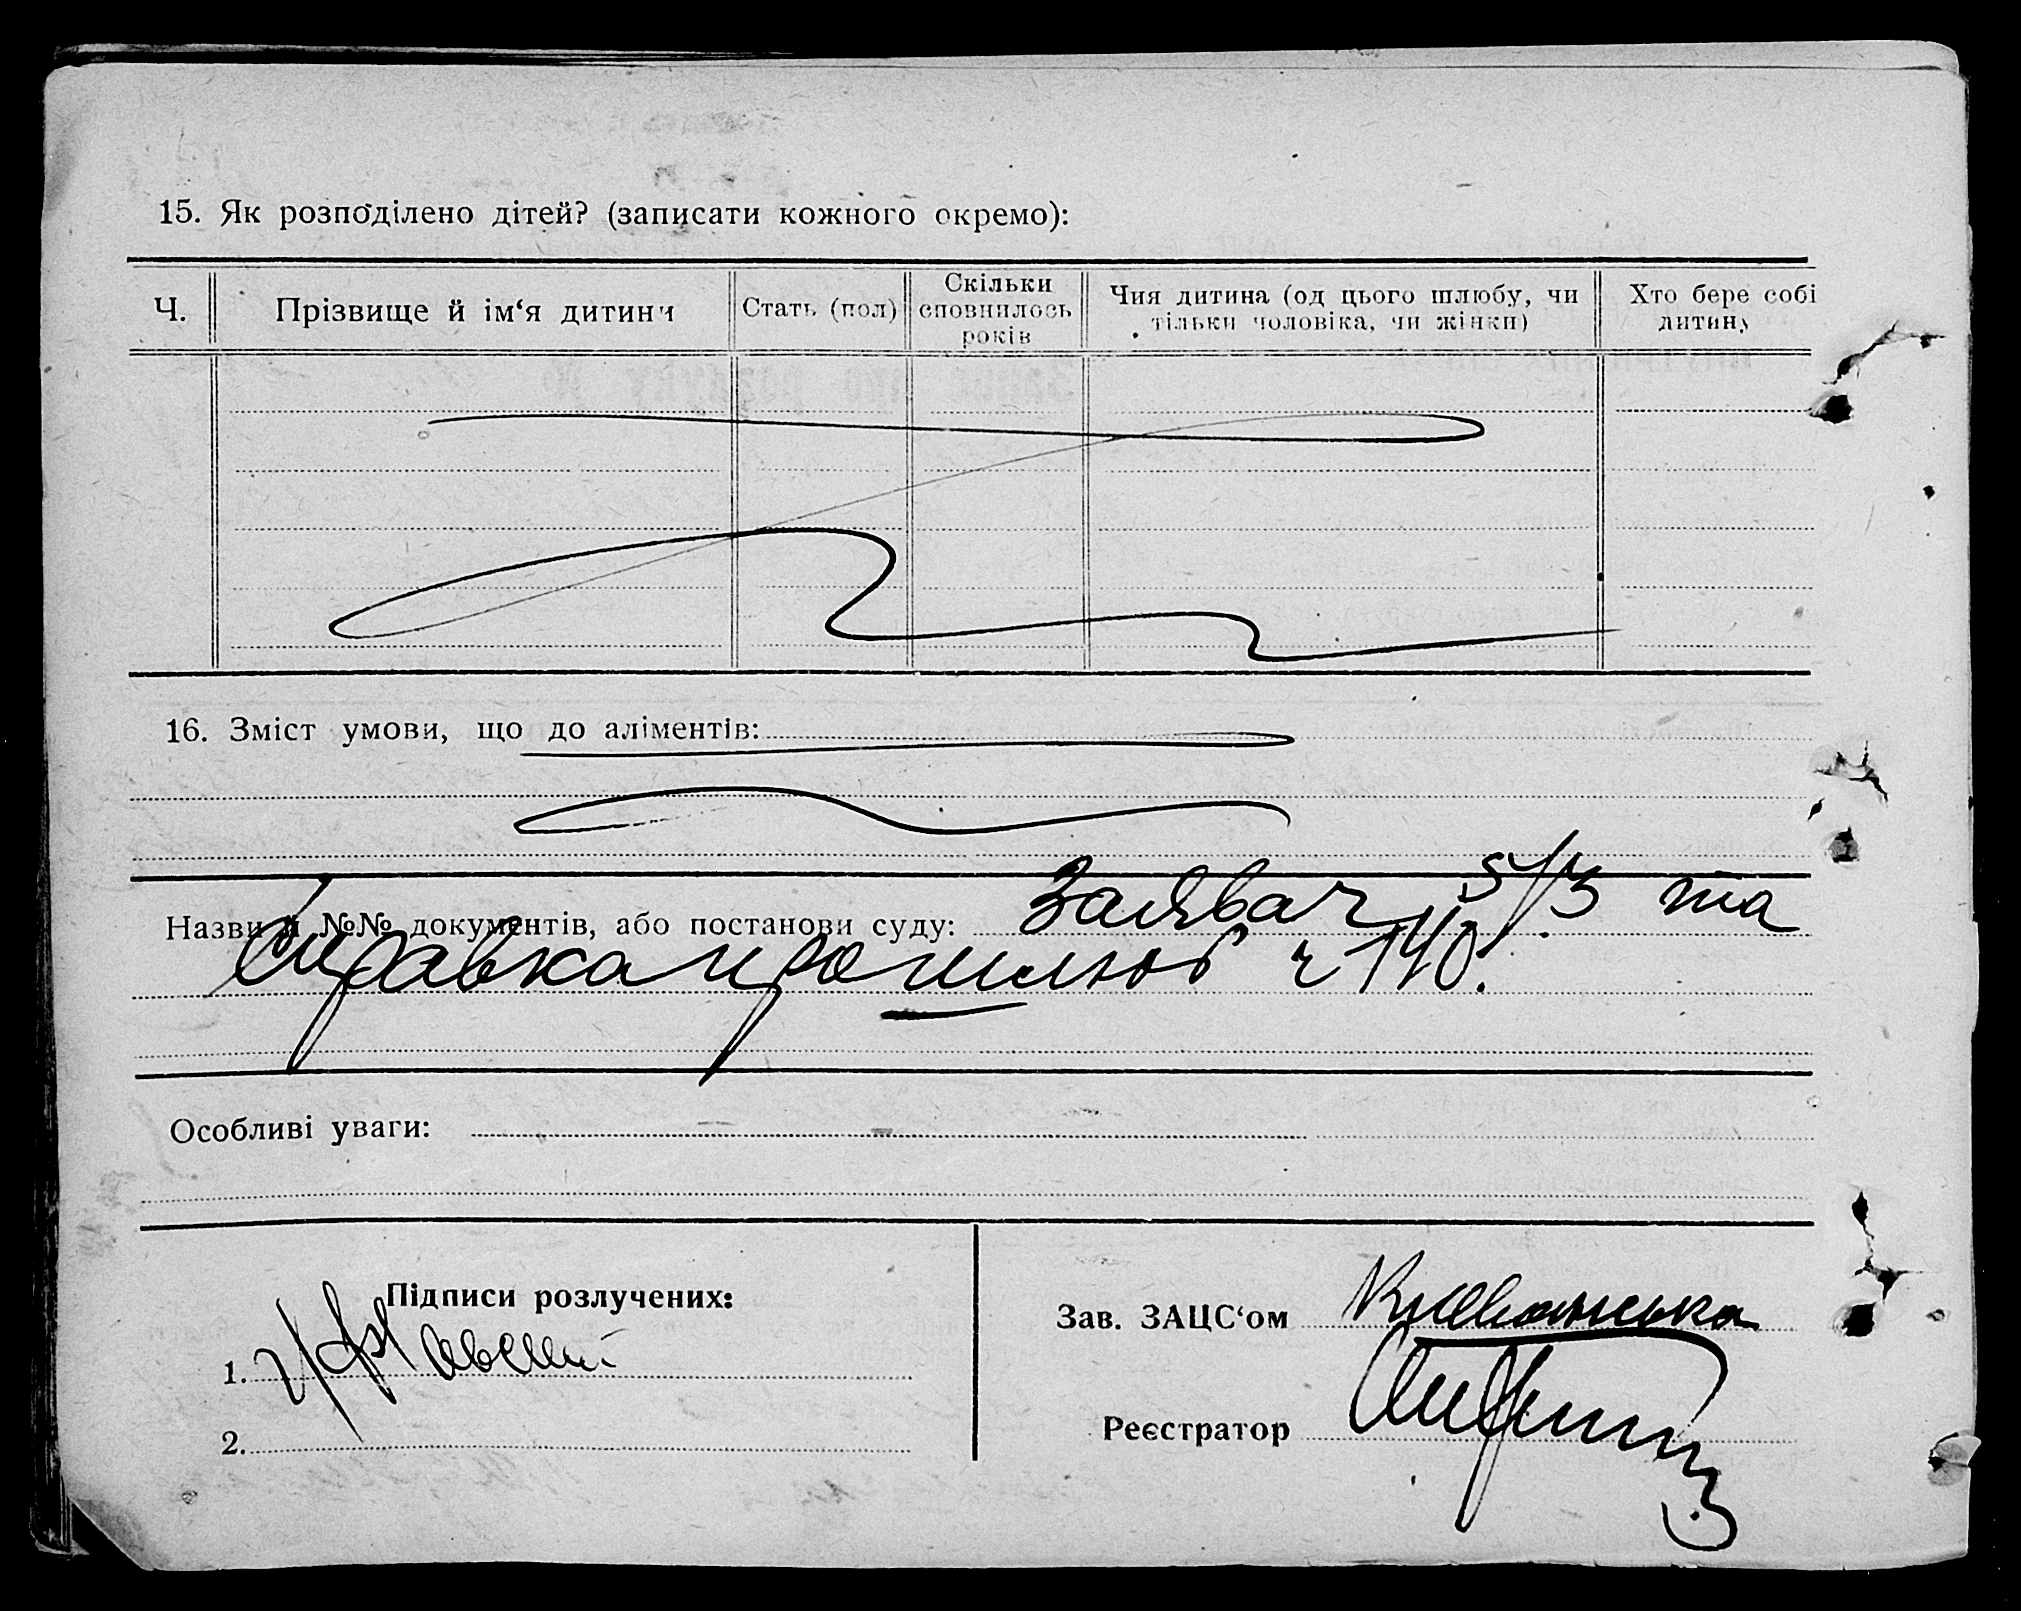 15. Як розподілено дітей? (записати кожного окремо):
Ч.
Прізвище й ім‘я дитини
Стать (пол)
Скільки
сповнилось
років
Чия дитина (од цього шлюбу, чи
тільки чоловіка, чи жінки)
Хто бере собі
дитину
16. Зміст умови, що до аліментів:
Назви й №№ документів, або постанови суду: 5/3 та
Справка про шлюб ч 140.
Особливі уваги:
Підписи розлучених:
1.
2.
Зав. ЗАЦС‘ом
Реєстратор